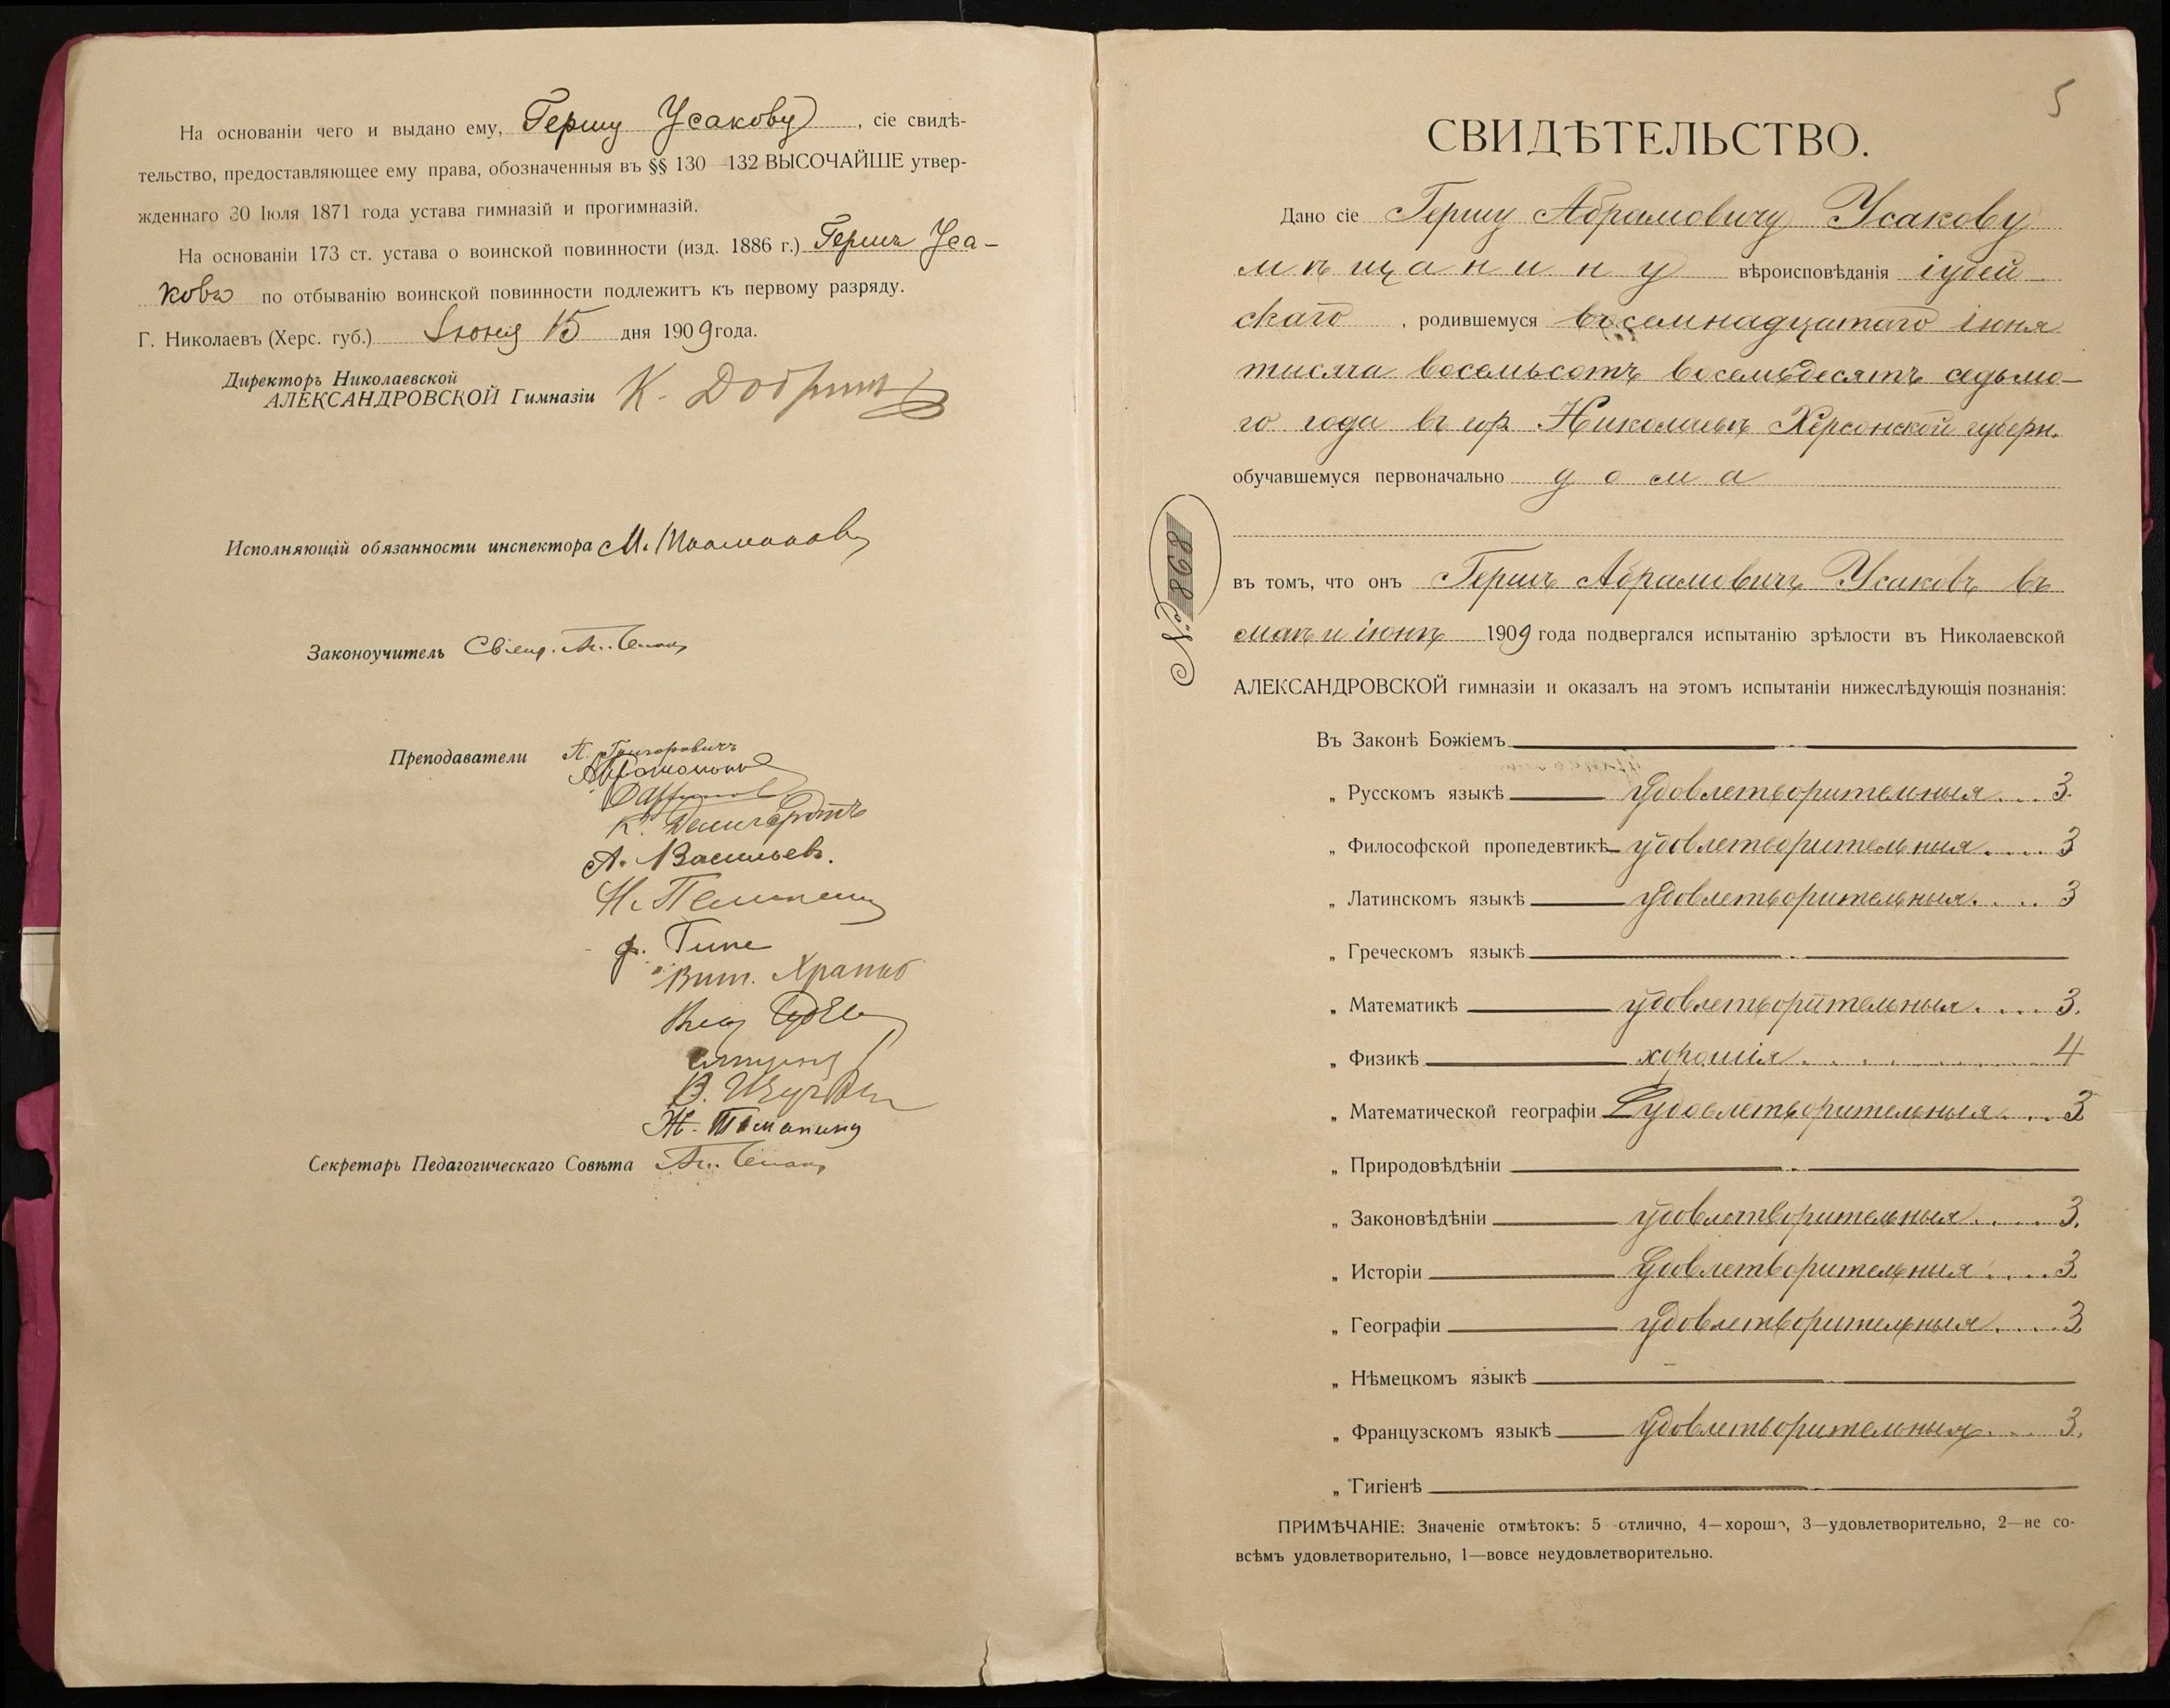 На основаніи чего и выдано ему, Гершу Усакову, сіе свидѣ-
тельство, предоставляющее ему права, обозначенныя въ §§ 130—132 ВЫСОЧАЙШЕ утвер-
жденнаго 30 Іюля 1871 года устава гимназій и прогимназій.
На основаніи 173 ст. устава о воинской повинности (изд. 1886 г.) Гершъ Уса-
ковъ по отбыванію воинской повинности подлежитъ къ первому разряду.
Г. Николаевъ (Херс. губ.) Іюня 15 дня 1909 года.
Директоръ Николаевской
АЛЕКСАНДРОВСКОЙ Гимназіи К.
Исполняющій обязанности инспектора М.
Законоучитель Свящ.
Преподаватели П. Григоровичъ
К.
А. Васильевъ.
Н.
Ф. Гипе
Вит.
В.
Ж.
Секретарь Педагогическаго Совѣта
5
СВИДѢТЕЛЬСТВО.
Дано сіе Гершу Абрамовичу Усакову
мѣщанину вѣроисповѣданія іудей
скаго, родившемуся семнадцатаго іюня
тысяча восемьсотъ восемьдесятъ седьмо-
го года въ гор. Николаевѣ Херсонской губерн.
обучавшемуся первоначально дома
№ 868
въ томъ, что онъ Гершъ Абрамовичъ Усаковъ въ
маѣ и іюнѣ 1909 года подвергался испытанію зрѣлости въ Николаевской
АЛЕКСАНДРОВСКОЙ гимназіи и оказалъ на этомъ испытаніи нижеслѣдующія познанія:
Въ Законѣ Божіемъ
„ Русскомъ языкѣ удовлетворительныя.... 3.
„ Философской пропедевтикѣ удовлетворительныя.... 3
„ Латинскомъ языкѣ удовлетворительныя.... 3
„ Греческомъ языкѣ
„ Математикѣ удовлетворительныя.... 3.
„ Физикѣ хорошія.......... 4
„ Математической географіи удовлетворительныя... 3
„ Природовѣдѣніи
„ Законовѣдѣніи удовлетворительныя.... 3.
„ Исторіи удовлетворительныя.... 3.
„ Географіи удовлетворительныя.... 3
„ Нѣмецкомъ языкѣ
„ Французскомъ языкѣ удовлетворительныя.... 3.
„ Гигіенѣ
ПРИМѢЧАНІЕ: Значеніе отмѣтокъ: 5—отлично, 4—хорошо, 3—удовлетворительно, 2—не со-
всѣмъ удовлетворительно, 1—вовсе неудовлетворительно.